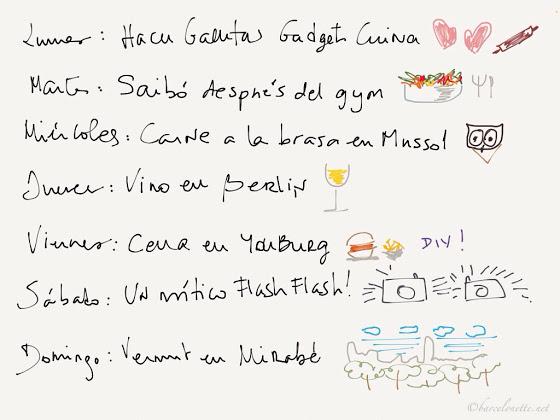 Lunes: Hacer Galletas Gadgets Cuina
Martes: Saibó después del gym
Miércoles: Carne a la brasa en Mussol
Jueves: Vino en Berlin
Viernes: Cena en YouBurg DIY!
Sábado: Un mítico Flash Flash!
Domingo: Vermut en Mirabé
©barcelonette.net